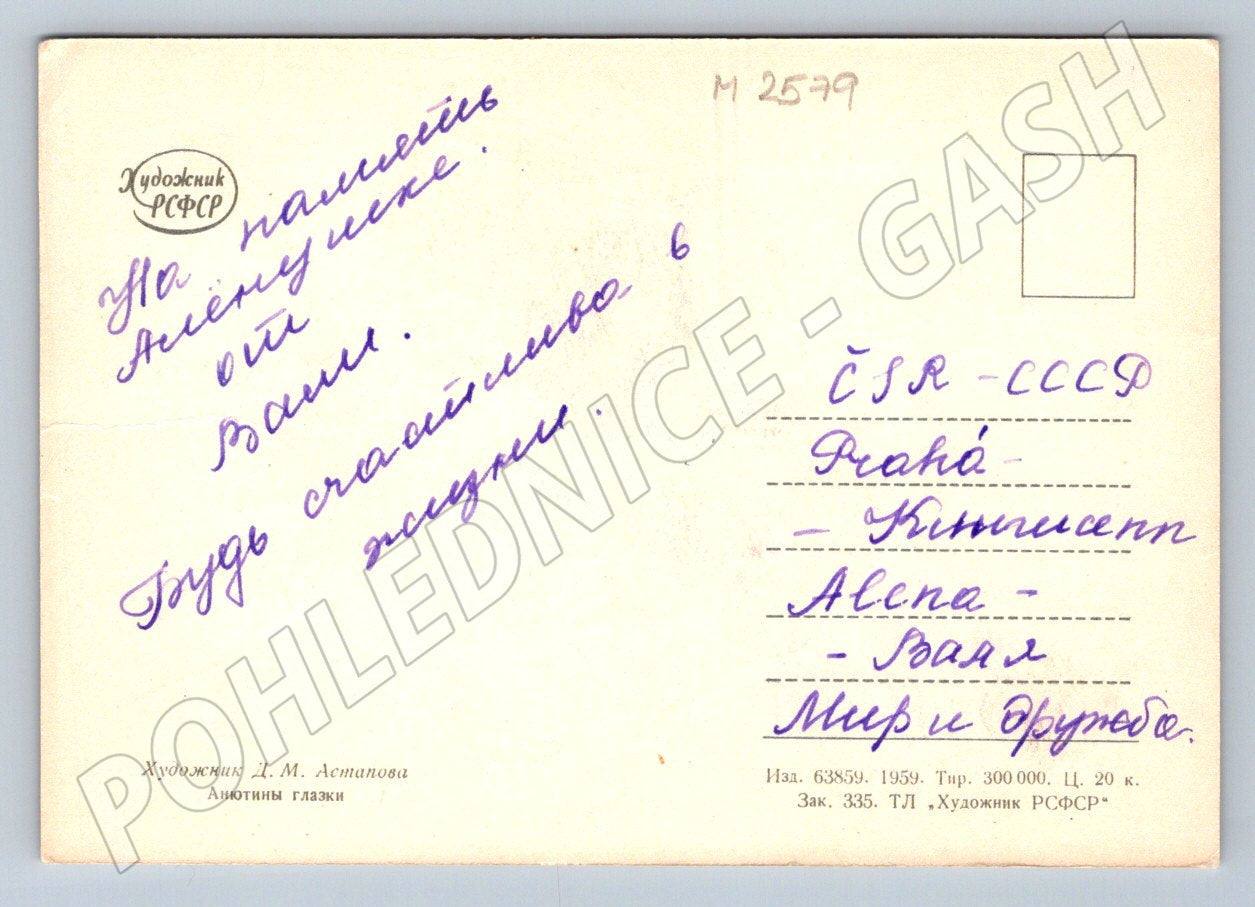 М 2579
Художник
РСФСР
На память
Алёнушке.
от
Вани.
Будь счастлива в
жизни.
ČSR - СССР
Praha -
- Клингманн
Alena -
- Ваня
Мир и дружба.
Художник Д. М. Астапова
Анютины глазки
Изд. 63859. 1959. Тир. 300 000. Ц. 20 к.
Зак. 335. ТЛ „Художник РСФСР“
POHLEDNICE - GASH